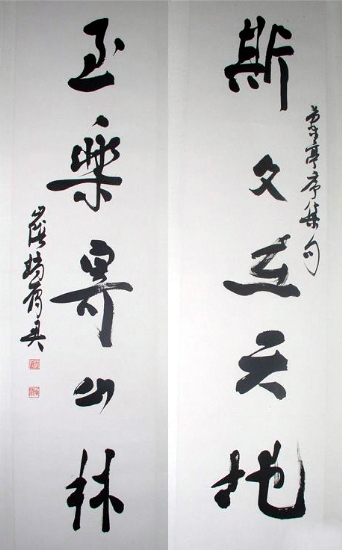 斯文在天地
兰亭序集句
至乐寄山林